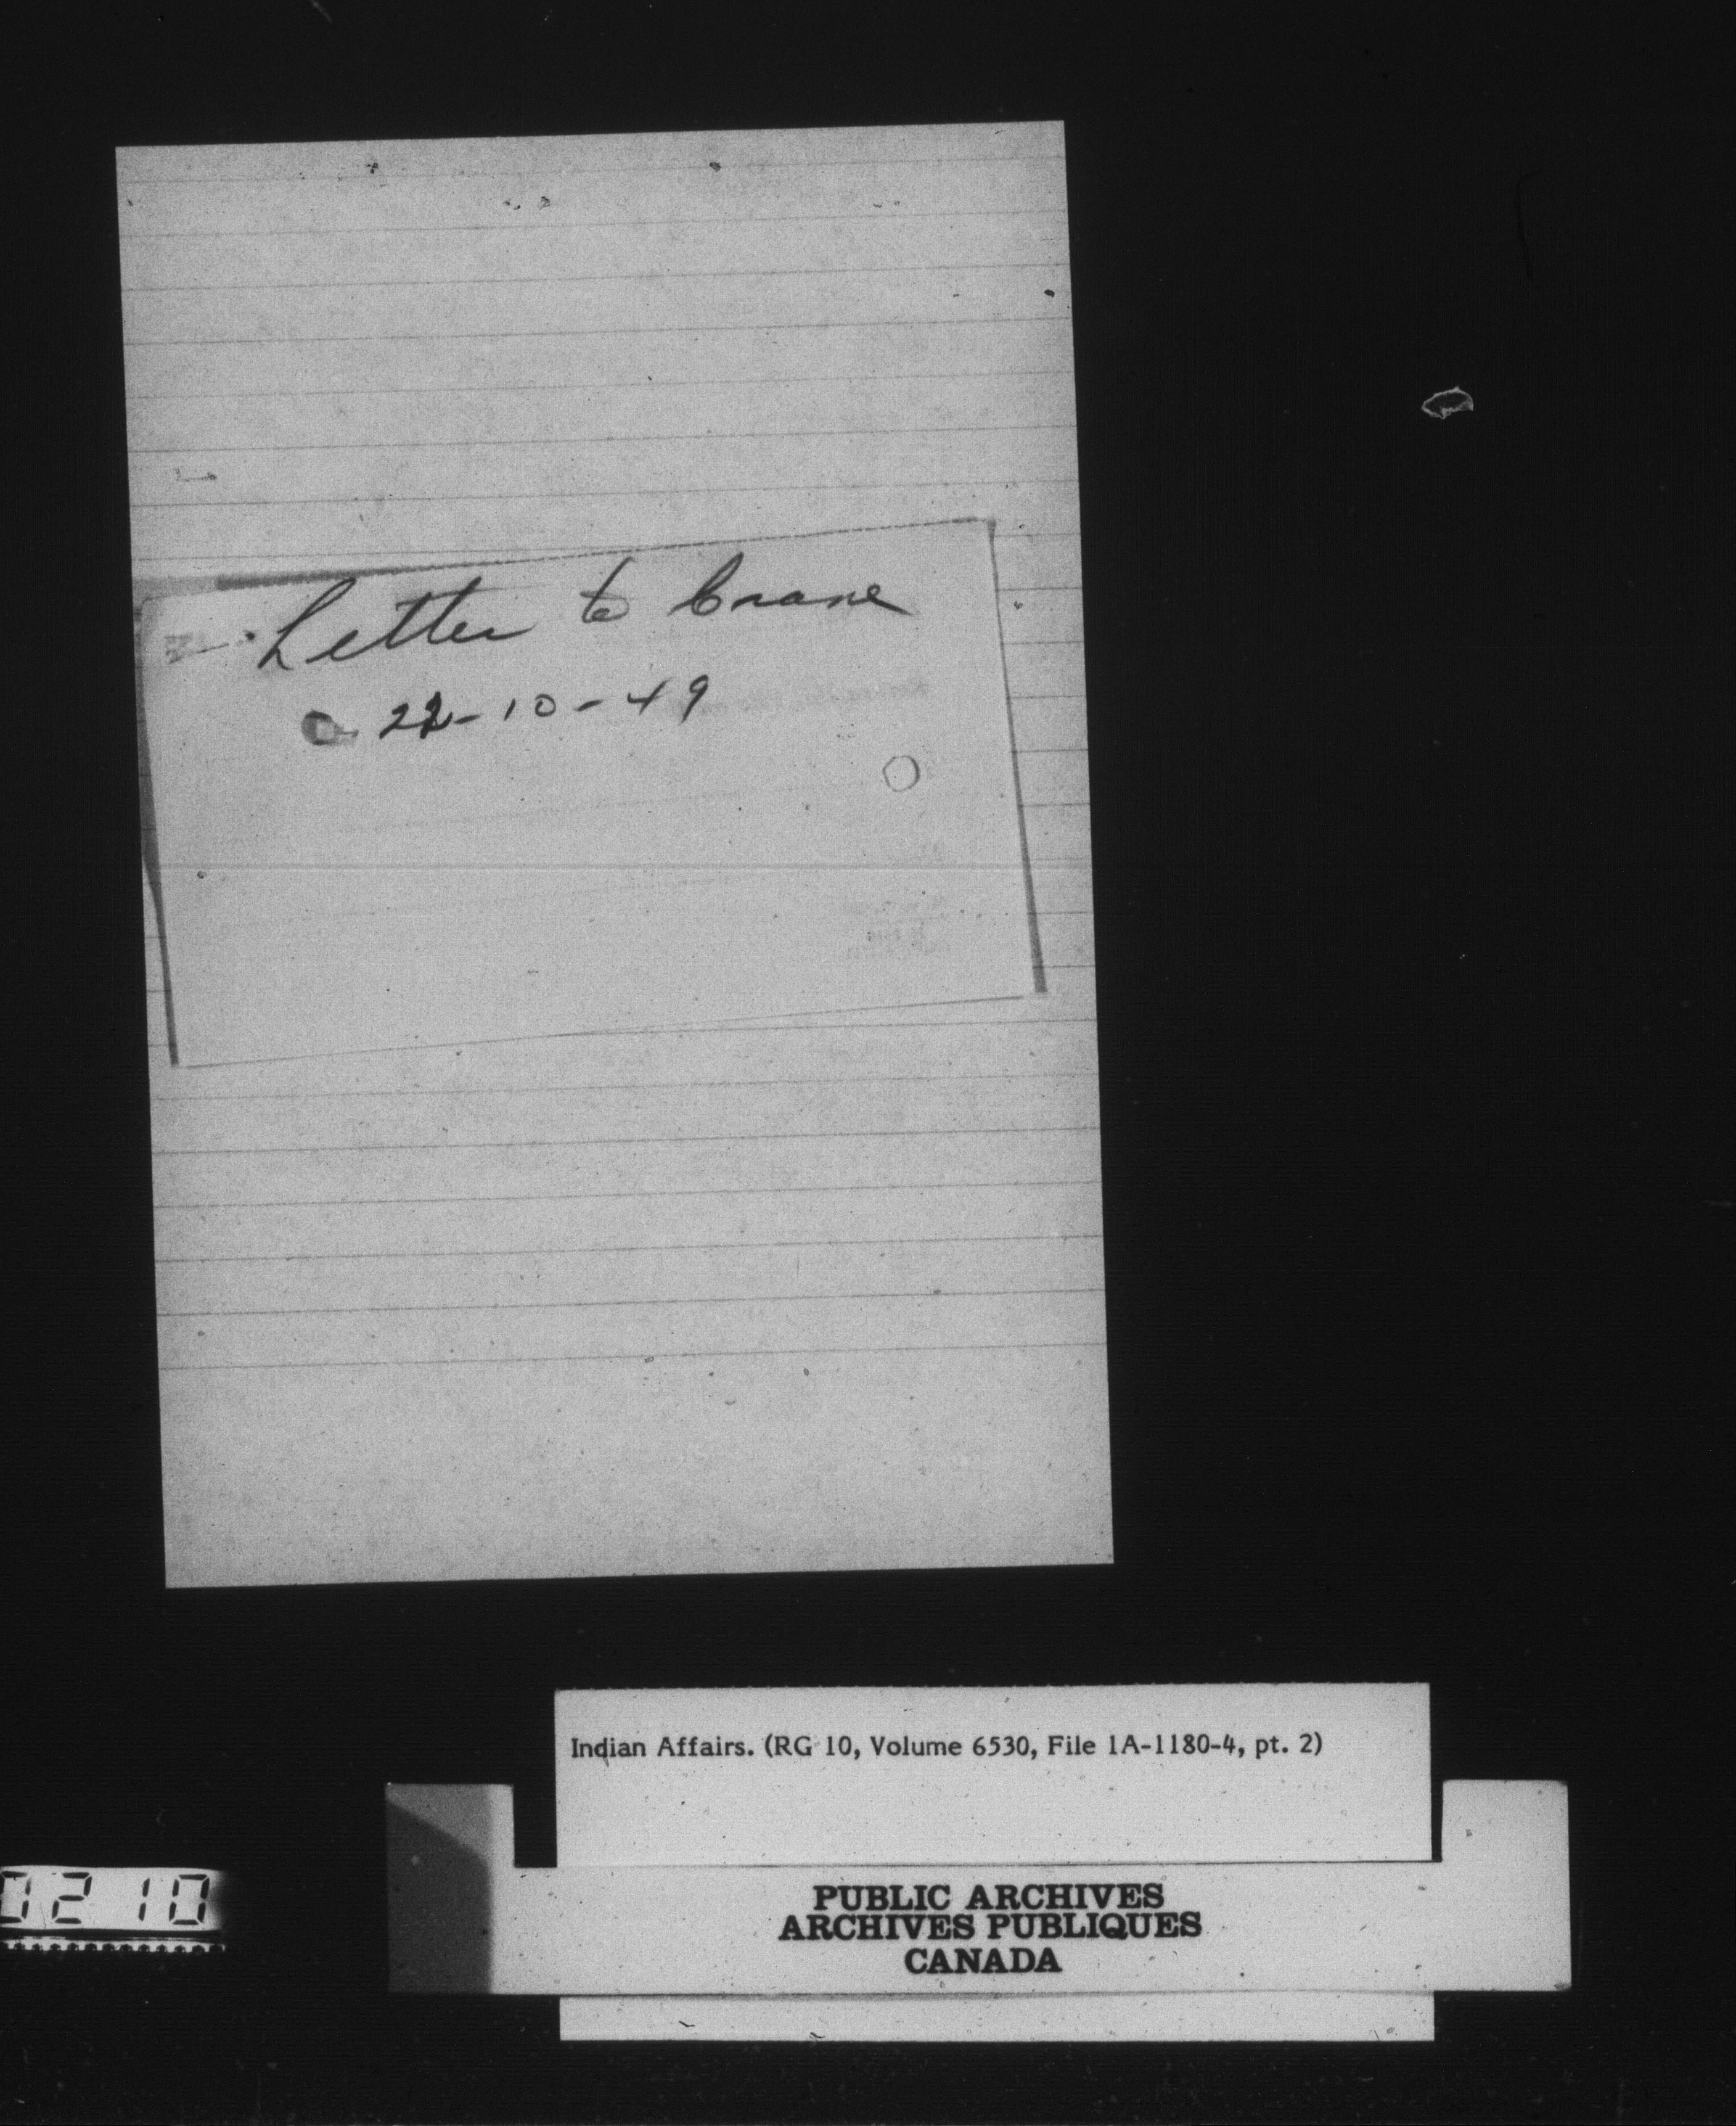 Letter to Crane
22-10-49
Indian Affairs. (RG 10, Volume 6530, File 1A-1180-4, pt. 2)
PUBLIC ARCHIVES
ARCHIVES PUBLIQUES
CANADA
0210